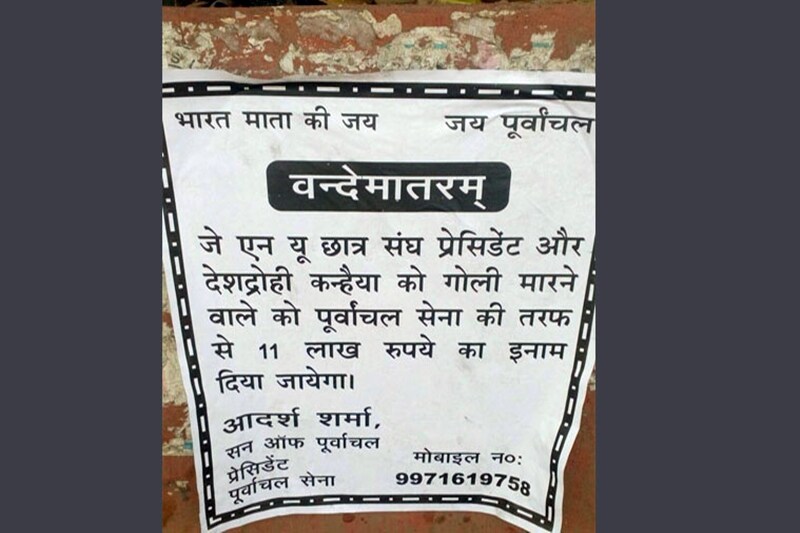 भारत माता की जय जय पूर्वांचल
वन्देमातरम्
जे एन यू छात्र संघ प्रेसिडेंट और
देशद्रोही कन्हैया को गोली मारने
वाले को पूर्वांचल सेना की तरफ
से 11 लाख रुपये का इनाम
दिया जायेगा।
आदर्श शर्मा,
सन ऑफ पूर्वाचल
प्रेसिडेंट
पूर्वाचल सेना
मोबाइल न०:
9971619758